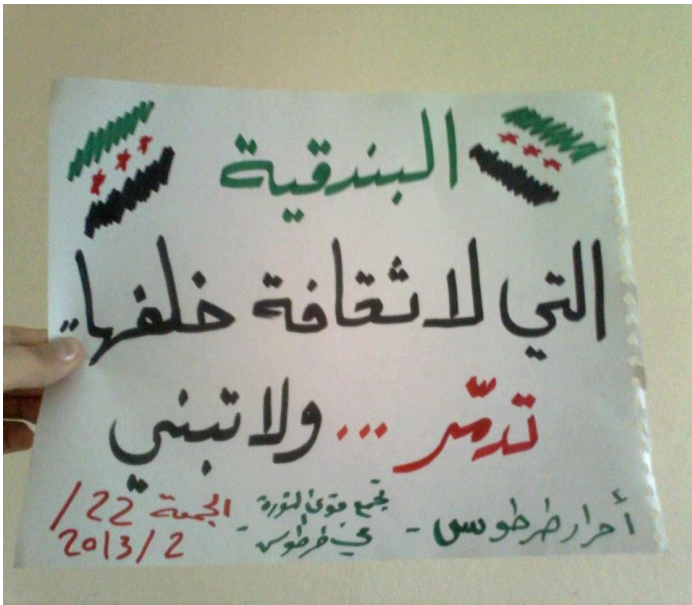 البندقية
التي لا ثقافة خلفها..
تدمّر ... ولا تبني
أحرار طرطوس - تجمع قوى الثورة في طرطوس - الجمعة 22/
2013/2